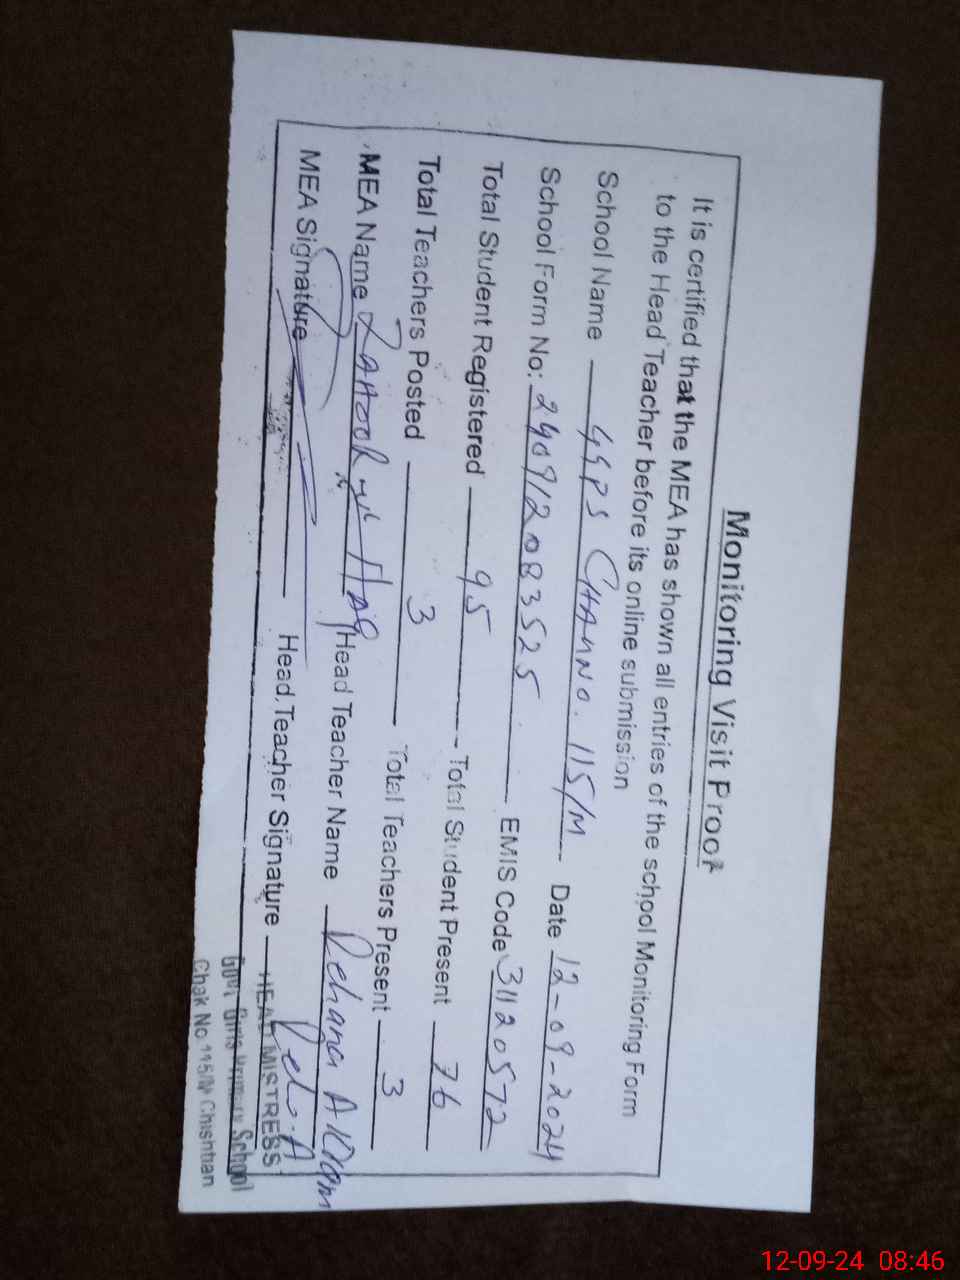 Monitoring Visit Proof
It is certified that the MEA has shown all entries of the school Monitoring Form
to the Head Teacher before its online submission
School Name GGPS CHAK NO. 115/M Date 12-09-2024
School Form No: 240912083525 EMIS Code 31120572
Total Student Registered 95 Total Student Present 76
Total Teachers Posted 3 Total Teachers Present 3
MEA Name ZAHOOR ul HAQ Head Teacher Name Rehana AKram
MEA Signature Head Teacher Signature
HEAD MISTRESS
Govt Girls Primary School
Chak No 115/M Chishtian
12-09-24 08:46